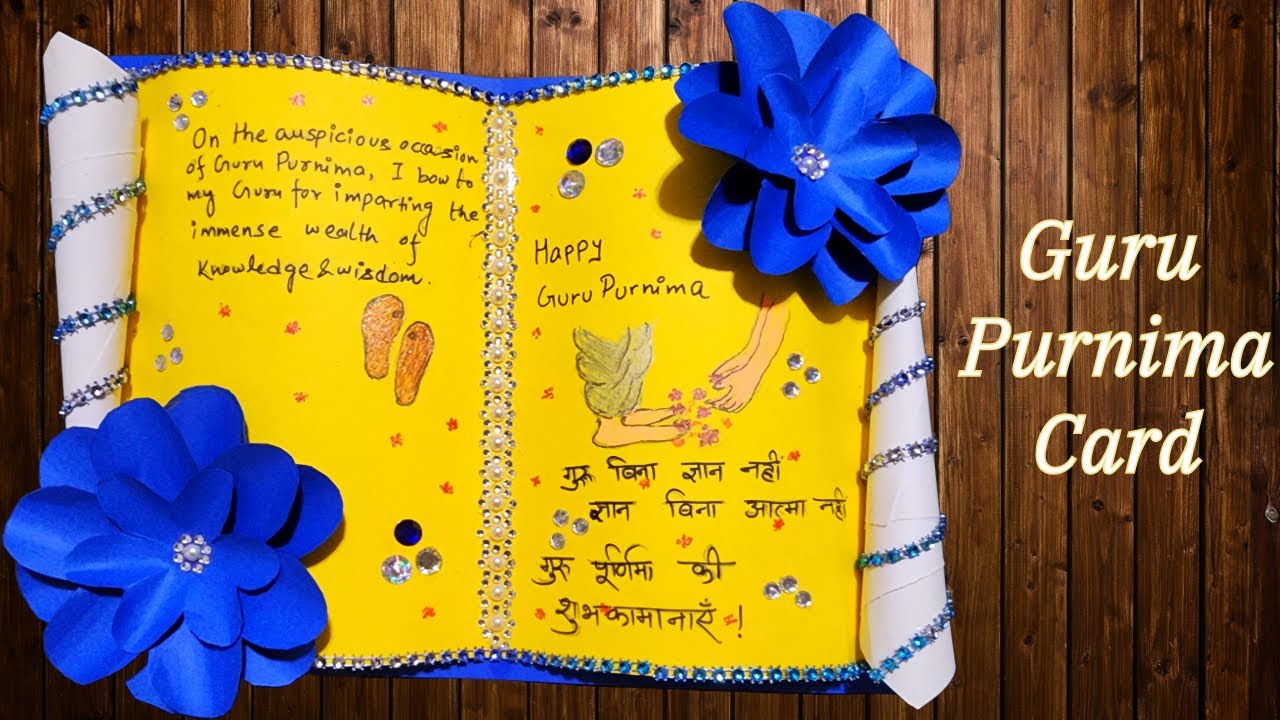 On the auspicious occasion
of Guru Purnima, I bow to
my Guru for imparting the
immense wealth of
Knowledge & wisdom.
Happy
Guru Purnima
गुरू बिना ज्ञान नहीं
ज्ञान बिना आत्मा नहीं
गुरू पूर्णिमा की
शुभकामानाएँ !
Guru
Purnima
Card